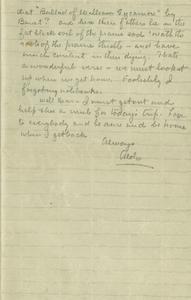 that "Ballad of William Sycamore" by
Benet? and how there fathers lie in the
fat black soil of the prairie and "with the
of the prairie thistle - and have
much content in their dying. That's
a wonderful verse - we must look it
up when we get home. Foolishly I
forgot my notebooks.
Well Hon - I must get out and
help shoe a mule for today's trip. Love
to everybody and be sure and be home
when I get back.
Always